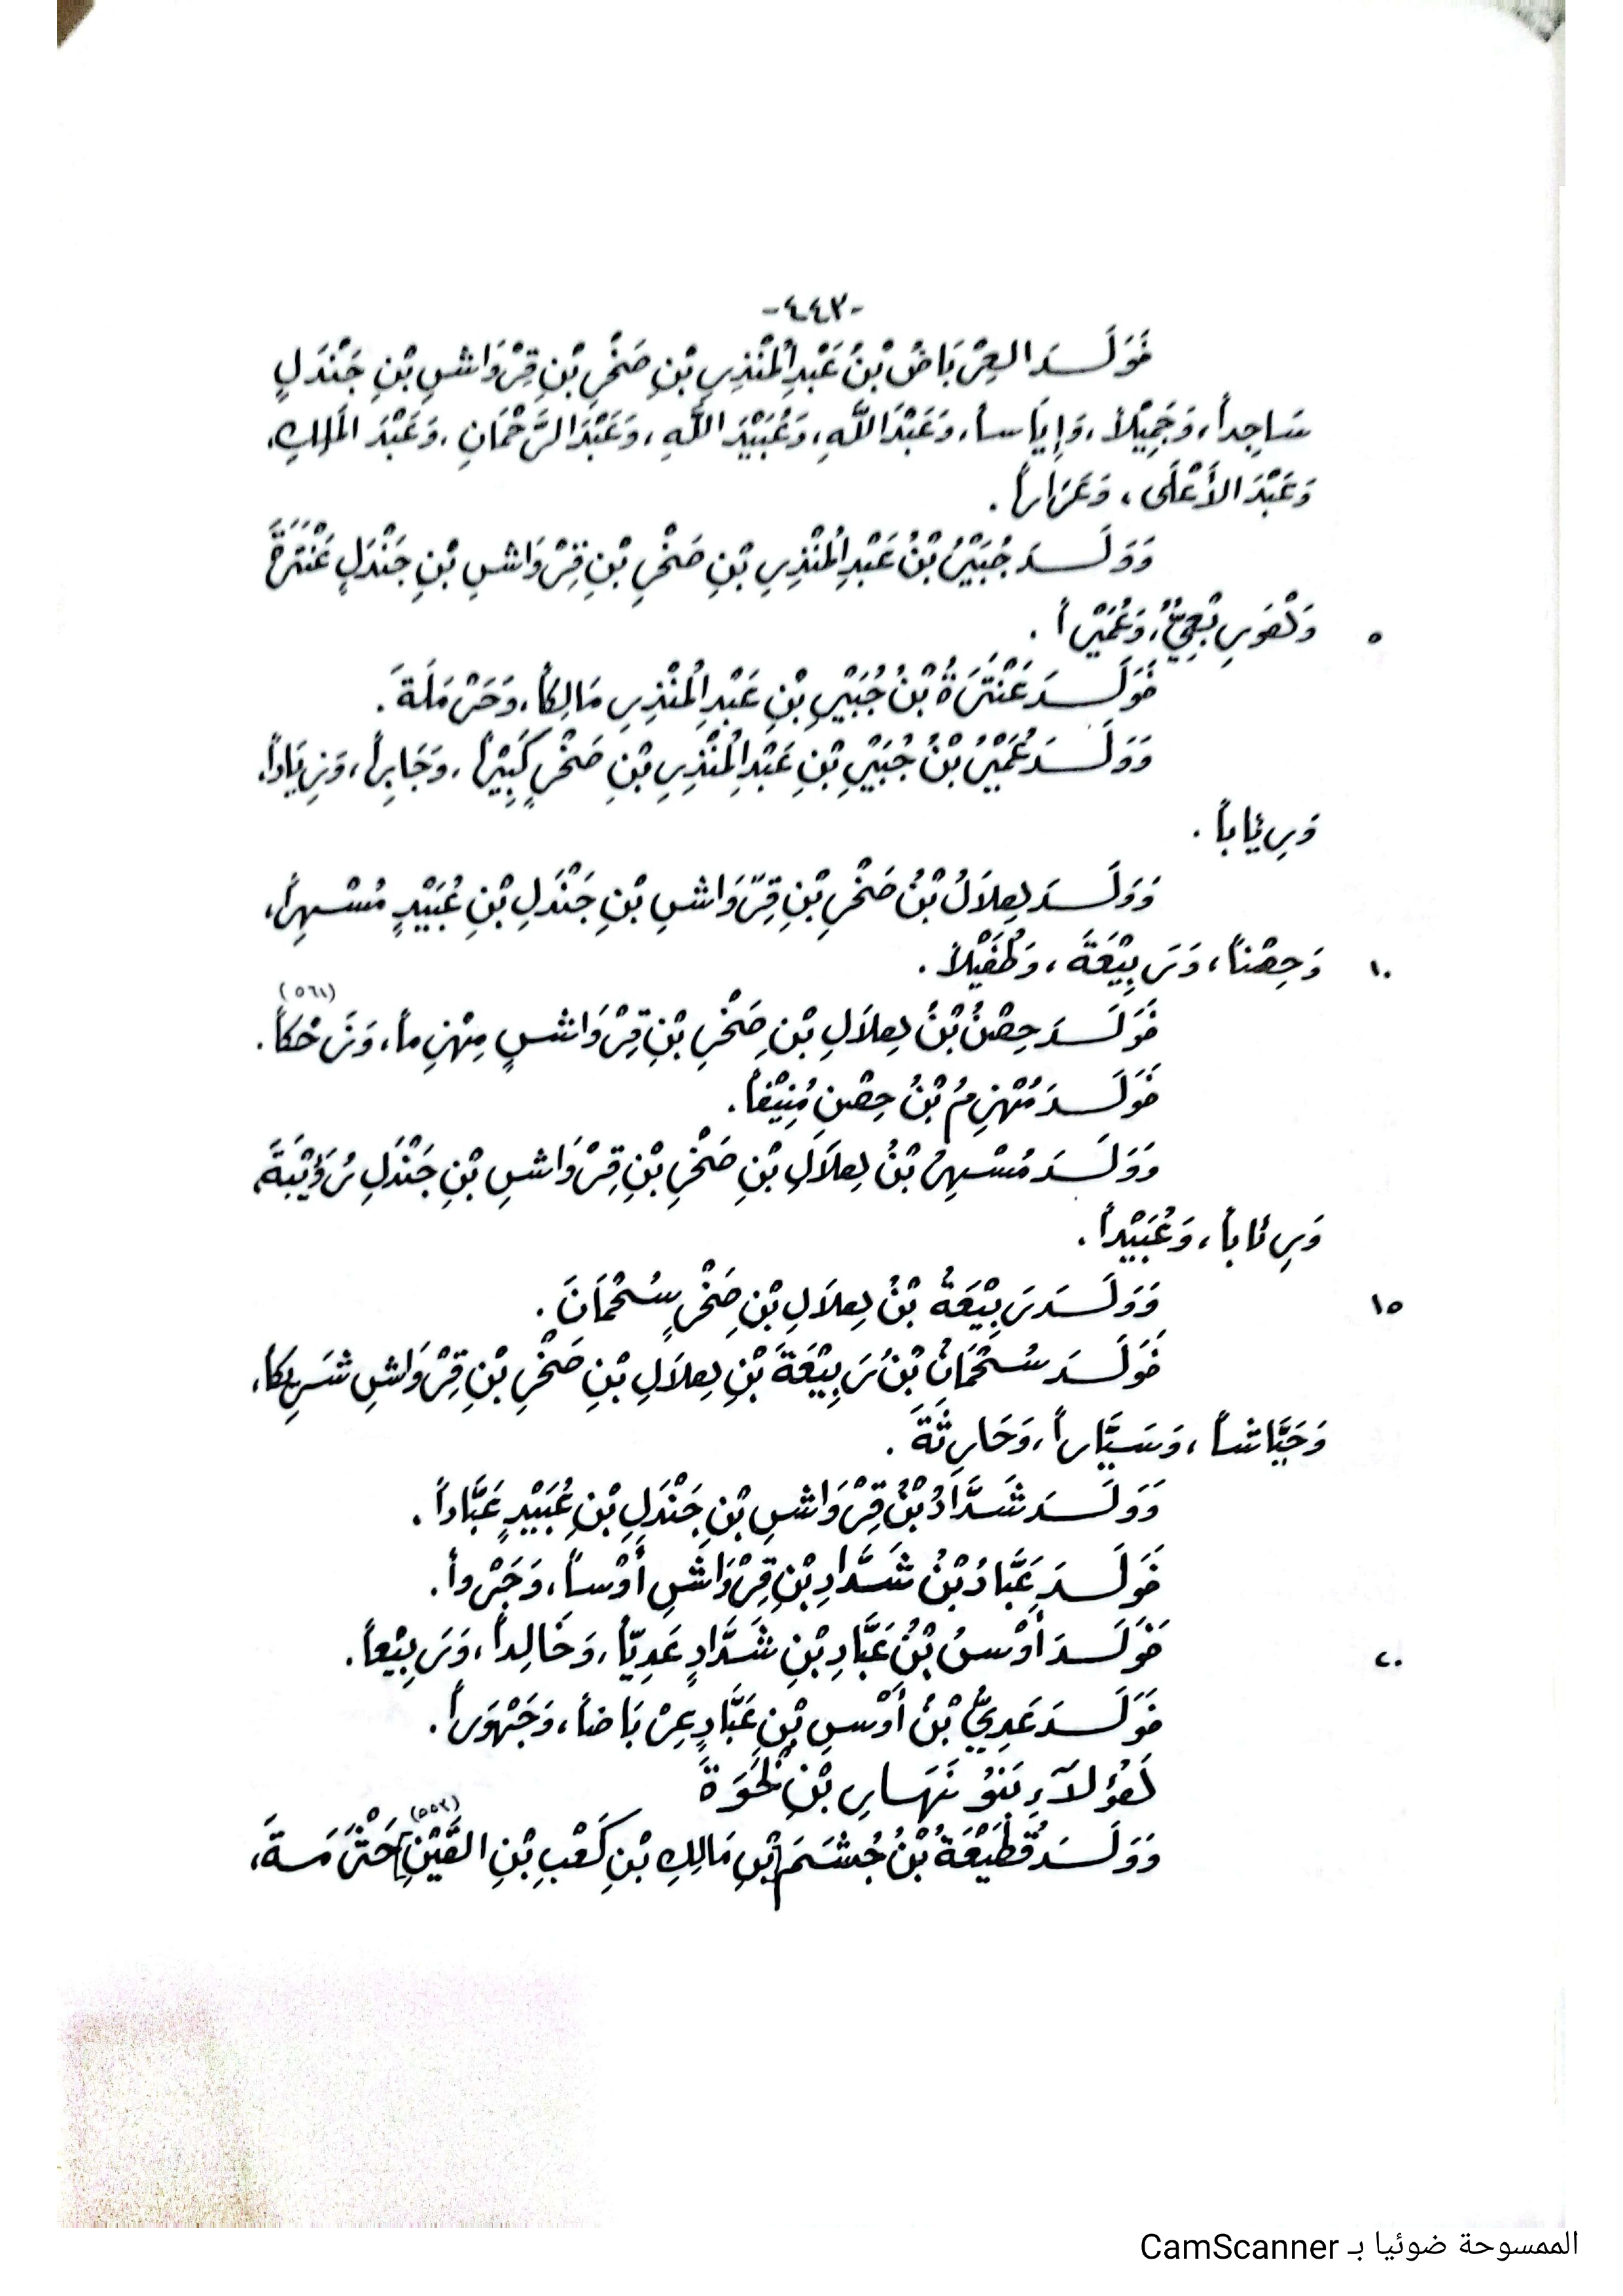 -٤٤٣-
فَوَلَدَ العِرْبَاضُ بْنُ عَبْدِ الْمُنْذِرِ بْنِ صَخْرِ بْنِ قِرْوَاشِ بْنِ جَنْدَلٍ
سَاجِداً، وَجَمِيْلاً، وَإِيَاساً، وَعَبْدَ اللَّهِ، وَعُبَيْدَ اللَّهِ، وَعَبْدَ الرَّحْمَانِ، وَعَبْدَ المَلِكِ،
وَعَبْدَ الأَعْلَى، وَعَرَاراً.
وَوَلَدَ جُبَيْرُ بْنُ عَبْدِ الْمُنْذِرِ بْنِ صَخْرِ بْنِ قِرْوَاشِ بْنِ جَنْدَلٍ عَنْتَرَةَ
وَهُوَ رِبْعِيٌّ، وَعُمَيْراً.
٥
فَوَلَدَ عَنْتَرَةُ بْنُ جُبَيْرِ بْنِ عَبْدِ الْمُنْذِرِ مَالِكاً، وَحَرْمَلَةَ.
وَوَلَدَ عُمَيْرُ بْنُ جُبَيْرِ بْنِ عَبْدِ الْمُنْذِرِ بْنِ صَخْرٍ كَبِيْراً، وَجَابِراً، وَزِيَاداً،
وَرِئَاباً.
وَوَلَدَ هِلاَلُ بْنُ صَخْرِ بْنِ قِرْوَاشِ بْنِ جَنْدَلِ بْنِ عُبَيْدٍ مُسْهِراً،
وَحِصْناً، وَرَبِيْعَةَ، وَطُفَيْلاً.
١٠
(٥٦١)
فَوَلَدَ حِصْنُ بْنُ هِلاَلِ بْنِ صَخْرِ بْنِ قِرْوَاشٍ مِهْزِماً، وَضَحَّاكاً.
فَوَلَدَ مُهْزِمُ بْنُ حِصْنٍ مُنِيْفاً.
وَوَلَدَ مُسْهِرُ بْنُ هِلاَلِ بْنِ صَخْرِ بْنِ قِرْوَاشِ بْنِ جَنْدَلٍ رُؤَيْبَةَ،
وَرِئَاباً، وَعُبَيْداً.
وَوَلَدَ رَبِيْعَةُ بْنُ هِلاَلِ بْنِ صَخْرٍ سُحْمَانَ.
١٥
فَوَلَدَ سُحْمَانُ بْنُ رَبِيْعَةَ بْنِ هِلاَلِ بْنِ صَخْرِ بْنِ قِرْوَاشِ شَرِيكاً،
وَجَيَّاشاً، وَسَيَّاراً، وَحَارِثَةَ.
وَوَلَدَ شَدَّادُ بْنُ قِرْوَاشِ بْنِ جَنْدَلِ بْنِ عُبَيْدٍ عَبَّاداً.
فَوَلَدَ عَبَّادُ بْنُ شَدَّادِ بْنِ قِرْوَاشِ أَوْساً، وَجَرْواً.
فَوَلَدَ أَوْسُ بْنُ عَبَّادِ بْنِ شَدَّادٍ عَدِيّاً، وَخَالِداً، وَرَبِيْعاً.
٢٠
فَوَلَدَ عَدِيُّ بْنُ أَوْسِ بْنِ عَبَّادٍ عِرْبَاضاً، وَجَهْوَراً.
هَؤُلاَءِ بَنُو نَهَارِ بْنِ
(٥٥٢)
وَوَلَدَ قُطَيْعَةُ بْنُ جُشَمَ [بْنِ مَالِكِ بْنِ كَعْبِ بْنِ القَيْنِ] خَثْرَمَةَ،
الممسوحة ضوئيا بـ CamScanner